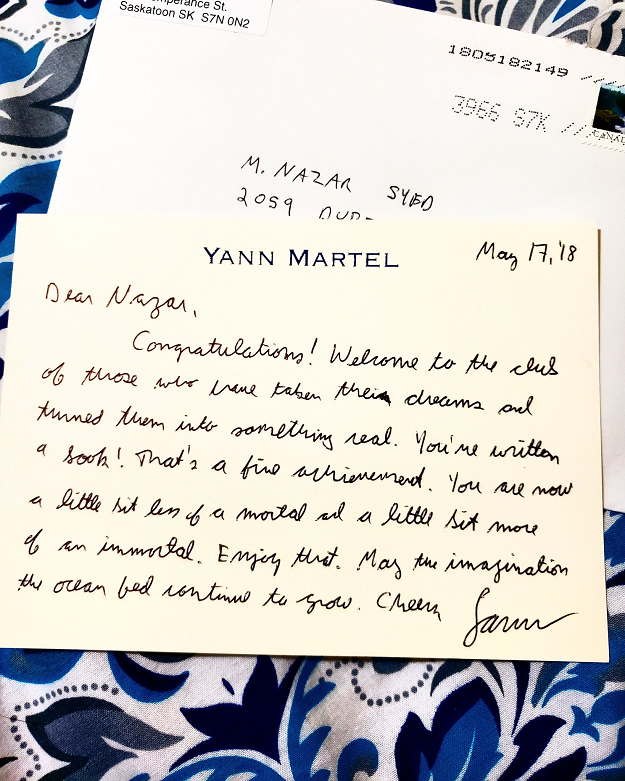 mperance St.
Saskatoon SK S7N 0N2
1805182149
3966 S7K
CANAD
M. NAZAR SYED
2059
YANN MARTEL
May 17, '18
Dear Nazar,
Congratulations! Welcome to the club
of those who have taken their dreams and
turned them into something real. You've written
a book! That's a fine achievement. You are now
a little bit less of a mortal and a little bit more
of an immortal. Enjoy that. May the imagination
the ocean bed continue to grow. Cheers,
Yann